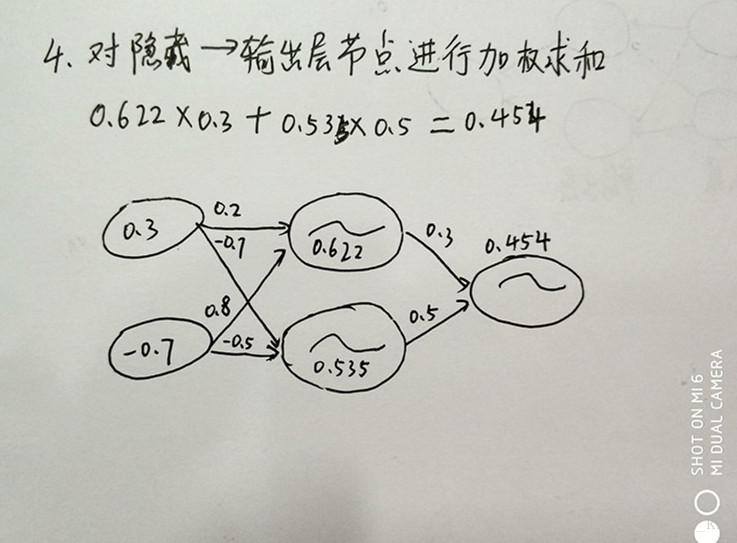 4. 对隐藏→输出层节点进行加权求和
0.622×0.3+0.535×0.5=0.454
0.3
0.2
-0.7
0.622
0.3
0.454
0.8
-0.7
-0.5
0.535
0.5
SHOT ON MI 6
MI DUAL CAMERA